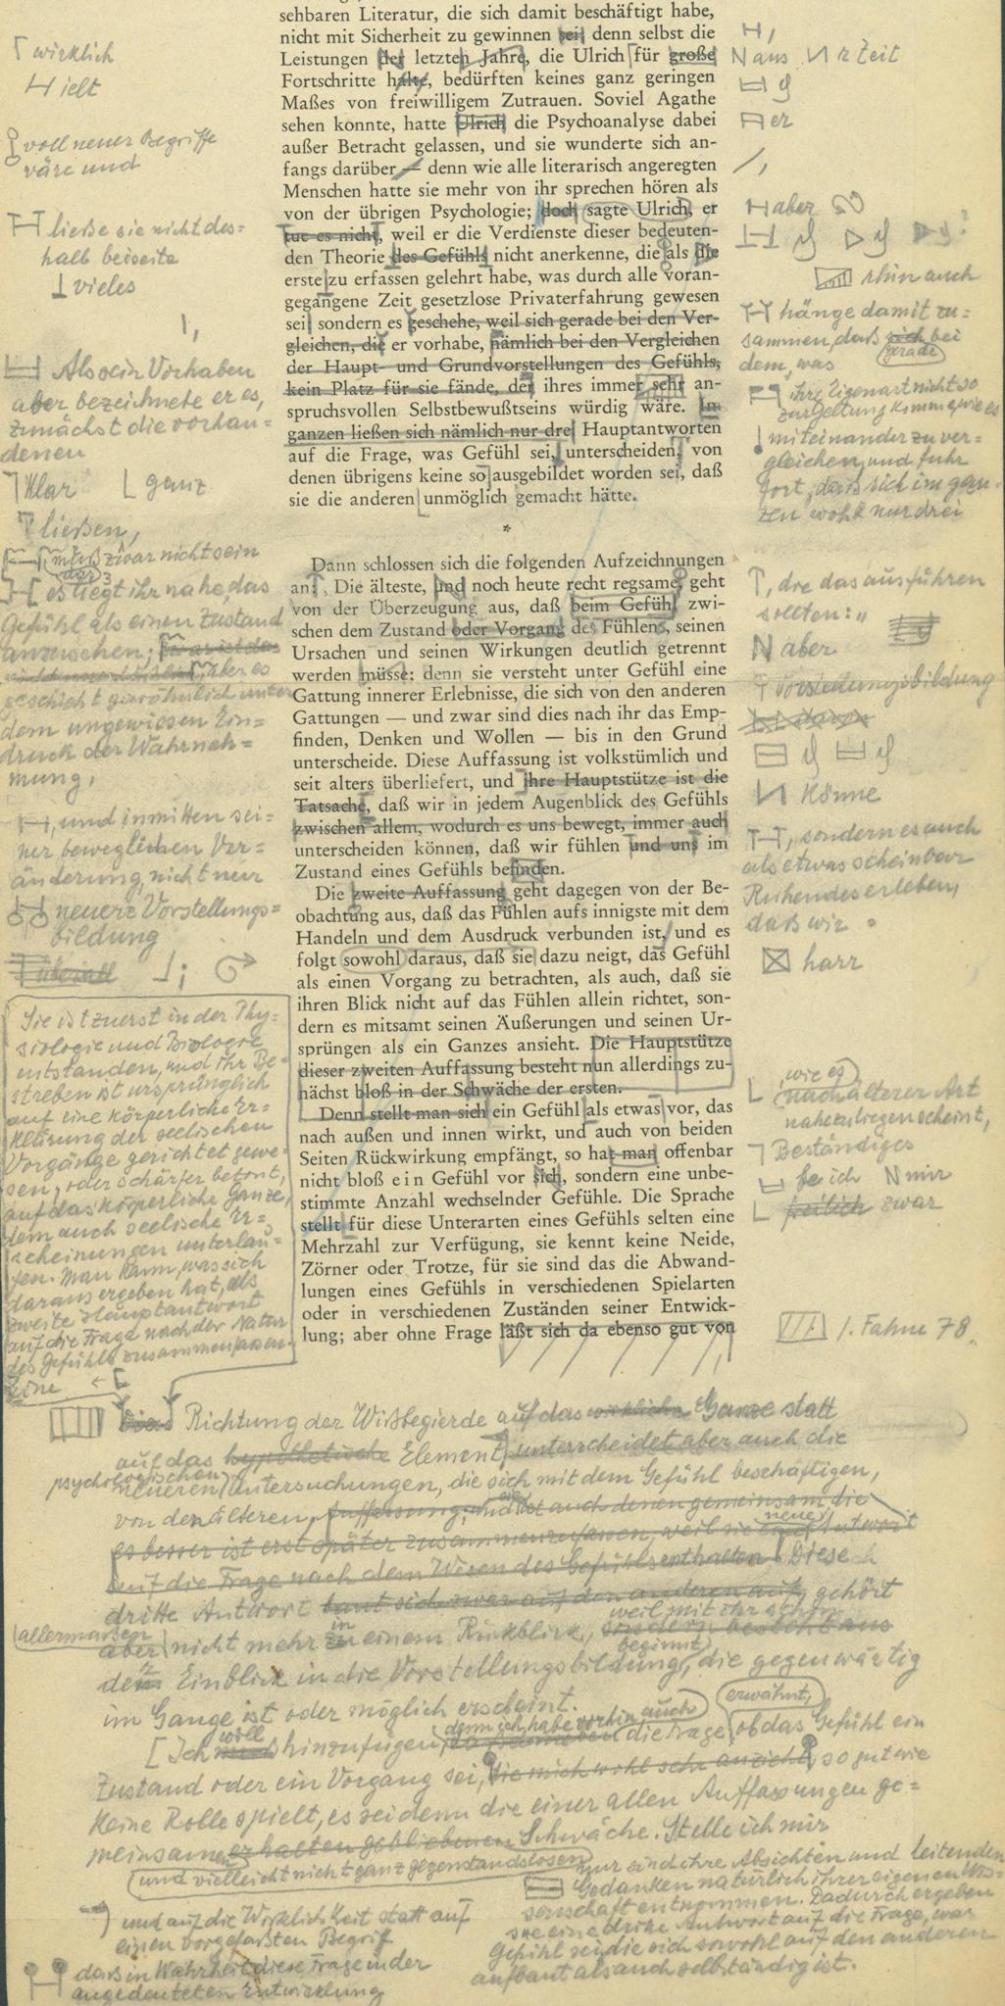 sehbaren Literatur, die sich damit beschäftigt habe,
nicht mit Sicherheit zu gewinnen sei; denn selbst die
Leistungen der letzten Jahre, die Ulrich für große
Fortschritte halte, bedürften keines ganz geringen
Maßes von freiwilligem Zutrauen. Soviel Agathe
sehen konnte, hatte Ulrich die Psychoanalyse dabei
außer Betracht gelassen, und sie wunderte sich an-
fangs darüber — denn wie alle literarisch angeregten
Menschen hatte sie mehr von ihr sprechen hören als
von der übrigen Psychologie; doch sagte Ulrich, er
tue es nicht, weil er die Verdienste dieser bedeuten-
den Theorie des Gefühls nicht anerkenne, die als die
erste zu erfassen gelehrt habe, was durch alle voran-
gegangene Zeit gesetzlose Privaterfahrung gewesen
sei, sondern es geschehe, weil sich gerade bei den Ver-
gleichen, die er vorhabe, nämlich bei den Vergleichen
der Haupt- und Grundvorstellungen des Gefühls,
kein Platz für sie fände, der ihres immer sehr an-
spruchsvollen Selbstbewußtseins würdig wäre. Im
ganzen ließen sich nämlich nur drei Hauptantworten
auf die Frage, was Gefühl sei, unterscheiden, von
denen übrigens keine so ausgebildet worden sei, daß
sie die anderen unmöglich gemacht hätte.
*
Dann schlossen sich die folgenden Aufzeichnungen
an: Die älteste, und noch heute recht regsame, geht
von der Überzeugung aus, daß beim Gefühl zwi-
schen dem Zustand oder Vorgang des Fühlens, seinen
Ursachen und seinen Wirkungen deutlich getrennt
werden müsse; denn sie versteht unter Gefühl eine
Gattung innerer Erlebnisse, die sich von den anderen
Gattungen — und zwar sind dies nach ihr das Emp-
finden, Denken und Wollen — bis in den Grund
unterscheide. Diese Auffassung ist volkstümlich und
seit alters überliefert, und ihre Hauptstütze ist die
Tatsache, daß wir in jedem Augenblick des Gefühls
zwischen allem, wodurch es uns bewegt, immer auch
unterscheiden können, daß wir fühlen und uns im
Zustand eines Gefühls befinden.
Die zweite Auffassung geht dagegen von der Be-
obachtung aus, daß das Fühlen aufs innigste mit dem
Handeln und dem Ausdruck verbunden ist, und es
folgt sowohl daraus, daß sie dazu neigt, das Gefühl
als einen Vorgang zu betrachten, als auch, daß sie
ihren Blick nicht auf das Fühlen allein richtet, son-
dern es mitsamt seinen Äußerungen und seinen Ur-
sprüngen als ein Ganzes ansieht. Die Hauptstütze
dieser zweiten Auffassung besteht nun allerdings zu-
nächst bloß in der Schwäche der ersten.
Denn stellt man sich ein Gefühl als etwas vor, das
nach außen und innen wirkt, und auch von beiden
Seiten Rückwirkung empfängt, so hat man offenbar
nicht bloß ein Gefühl vor sich, sondern eine unbe-
stimmte Anzahl wechselnder Gefühle. Die Sprache
stellt für diese Unterarten eines Gefühls selten eine
Mehrzahl zur Verfügung, sie kennt keine Neide,
Zörner oder Trotze, für sie sind das die Abwand-
lungen eines Gefühls in verschiedenen Spielarten
oder in verschiedenen Zuständen seiner Entwick-
lung; aber ohne Frage läßt sich da ebenso gut von
wirklich
ielt
voll neuer Begriffe
wäre und
ließe sie nicht des=
halb beiseite
vieles
Also sein Vorhaben
aber bezeichnete er es,
zunächst die vorhan=
denen
klar
ganz
ließen,
zwar nicht sein
es liegt ihr nahe, das
Gefühl als einen Zustand
anzusehen;
aber es
geschieht gewöhnlich unter
dem ungewissen Ein=
druck der Wahrneh=
mung,
, und inmitten sei=
ner beweglichen Ver=
änderung, nicht nur
neuere Vorstellungs=
bildung
Sie ist zuerst in der Phy=
siologie und Biologie
entstanden, und ihr Be=
streben ist ursprünglich
auf eine körperliche Er=
klärung der seelischen
Vorgänge gerichtet gewe=
sen, oder schärfer betont,
auf das körperliche Ganze,
dem auch seelische Er=
scheinungen unterlau=
fen. Man kann, was sich
daraus ergeben hat, als
zweite Hauptantwort
auf die Frage nach der Natur
des Gefühls zusammenfassen.
Eine
aus
r Zeit
er
aber
rhin auch
hänge damit zu=
sammen, daß sich bei
gerade
dem, was
ihre Eigenart nicht so
zur Geltung komme, wie es
miteinander zu ver=
gleichen, und fuhr
fort, daß sich im gan=
zen wohl nur drei
, die das ausführen
sollten: „
aber
Vorstellungsbildung
könne
, sondern es auch
als etwas scheinbar
Ruhendes erleben,
daß wir
harr
, wie es
nach älterer Art
nahezuliegen scheint,
Beständiges
be ich
mir
freilich zwar
1. Fahne 78.
Richtung der Wißbegierde auf das wirkliche Ganze statt
auf das hypothetische Element, unterscheidet aber auch die
psychologischen
neueren Untersuchungen, die sich mit dem Gefühl beschäftigen,
von den älteren,
neue
auf die Frage nach dem Wesen des Gefühls enthalten. Diese
dritte Antwort baut sich zwar auf den anderen auf, gehört
allermaßen
weil mit ihr schon
aber nicht mehr in einem Rückblick,
beginnt
der Einblick in die Vorstellungsbildung, die gegenwärtig
im Gange ist oder möglich erscheint.
denn ich habe vorhin auch
erwähnt,
[Ich will hinzufügen, die Frage, ob das Gefühl ein
Zustand oder ein Vorgang sei, die mich wohl sehr anzieht, so gut wie
keine Rolle spielt, es sei denn die einer allen Auffassungen ge=
meinsamen erhalten gebliebenen Schwäche. Stelle ich mir
(und vielleicht nicht ganz gegenstandslosen
Nur sind ihre Absichten und leitenden
Gedanken natürlich ihrer eigenen Wis=
senschaft entnommen. Dadurch ergeben
sie eine dritte Antwort auf die Frage, was
Gefühl sei, die sich sowohl auf den anderen
aufbaut als auch selbständig ist.
und auf die Wirklichkeit statt auf
einen vorgefaßten Begriff
daß in Wahrheit diese Frage in der
angedeuteten Entwicklung